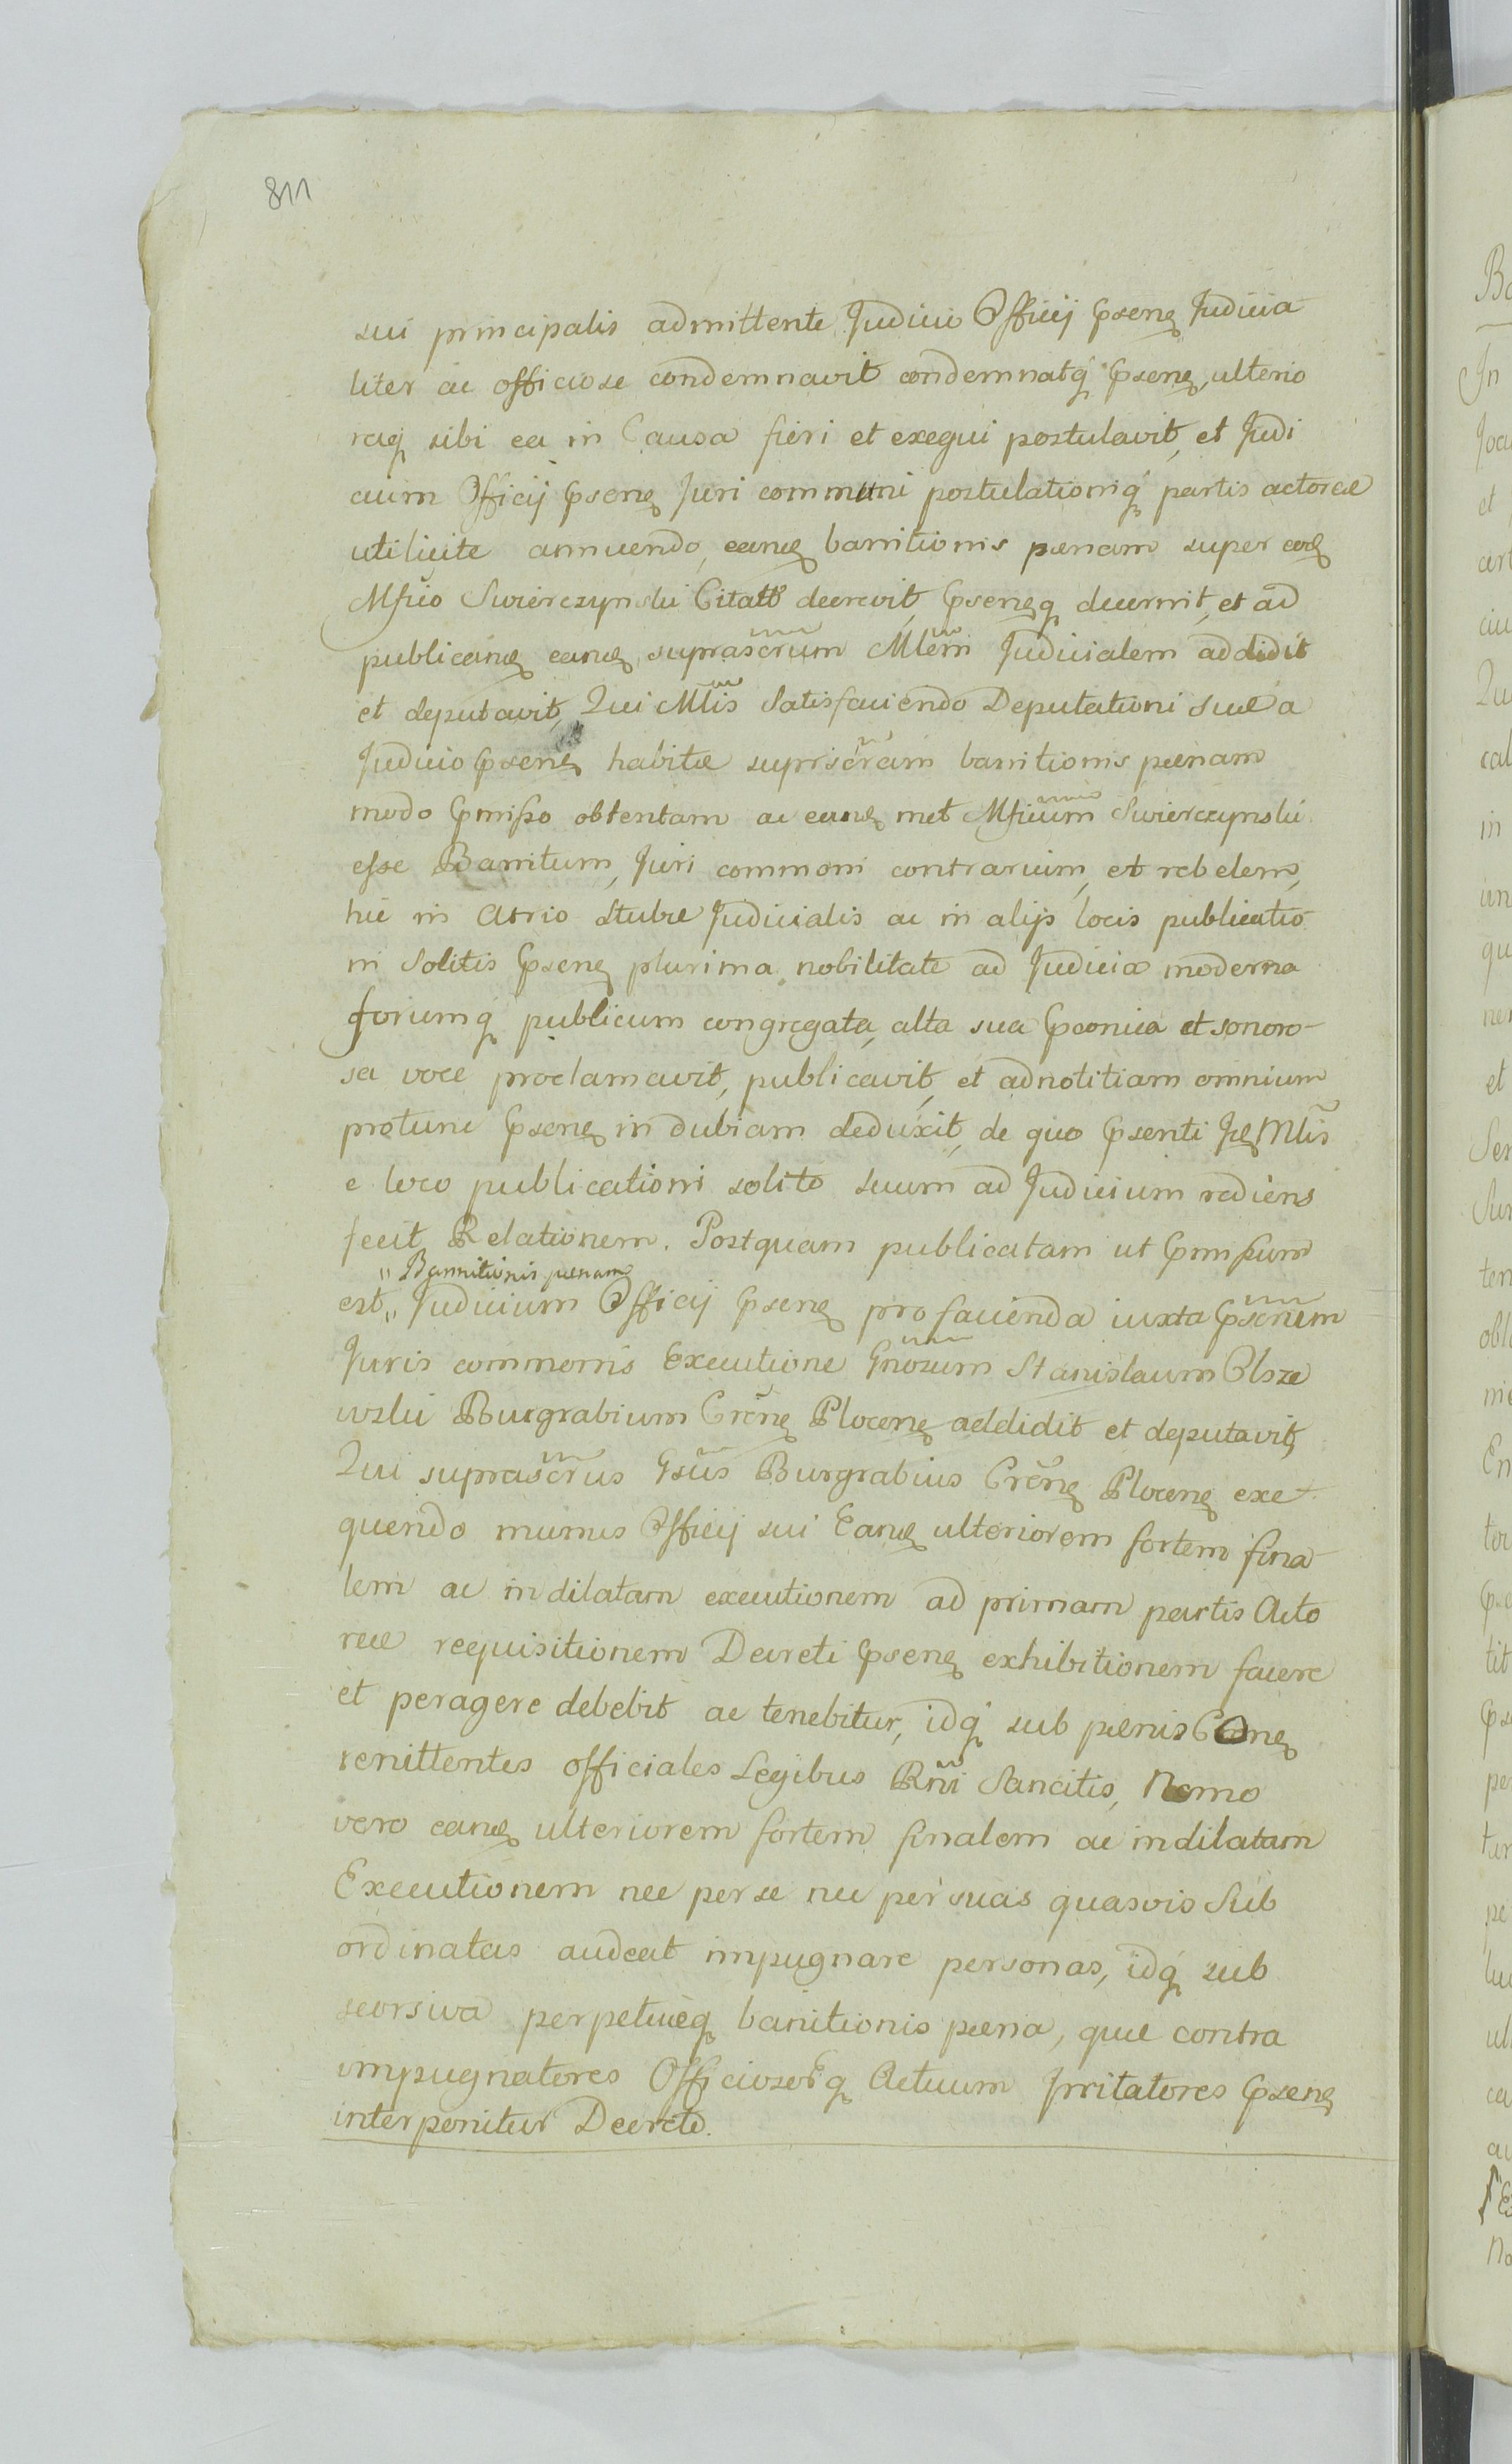 811
sui principalis admittente Judicio Officij Psenѕ Judicia
liter ac officiose condemnavit condemnatq Psens, ulterio
raq sibi ea in Causa fieri et exequi postulavit, et Judi
cium Officij Psens Juri communi postulationiq partis actoreæ
uti licite annuendo, eands banitionis pænam super eods
Mfico Swierczynski Citatto decrevit, Psensq decernit, et ad
publicands eands suprascrum Mlem Judicialem addidit
et deputavit, Qui Mlis Satisfaciendo Deputationi suæ a
Judicio Psens habitæ supriscram banitionis pænam
modo Pmisso obtentam ac eunds met Mficum Swierczynski
esse Banitum, Juri commoni contrarium, et rebelem,
hic in Atrio Stubæ Judicialis ac in alijs locis publicatio
ni Solitis Psens plurima nobilitate ad Judicia moderna
forumq publicum congregata, alta sua Pconica et sonoro-
sa voce proclamavit, publicavit, et ad notitiam omnium
protunc Psens indubiam deduxit, de quo Psenti Ids Mlis
e loco publicationi solito suum ad Judicium rediens
fecit Relationem. Postquam publicatam ut Pmissum
" Bannitionis pænam
est " Judicium Officij Psens pro facienda iuxta Pscrium
Juris commonis Executione Gnosum Stanislaum Olsze
wski Burgrabium Crens Plocens addidit et deputavit,
Qui suprascrus Gsus Burgrabius Crens Plocens exe
quendo munus Officij sui Eands ulteriorem fortem fina
lem ac indilatam executionem ad primam partis Acto
reæ requisitionem Decreti Psens exhibitionem facere
et peragere debebit ac tenebitur, idq sub pænis Cons
renittentes officiales Legibus Rni Sancitis, Nemo
vero eands ulteriorem fortem finalem ac indilatam
Executionem nec per se nec per suas quasvis Sub
ordinatas audeat impugnare personas, idq sub
seorsiva perpetuæq banitionis pæna, quæ contra
impugnatores Officiosorq Actuum Irritatores Psens
interponitur Decreto.